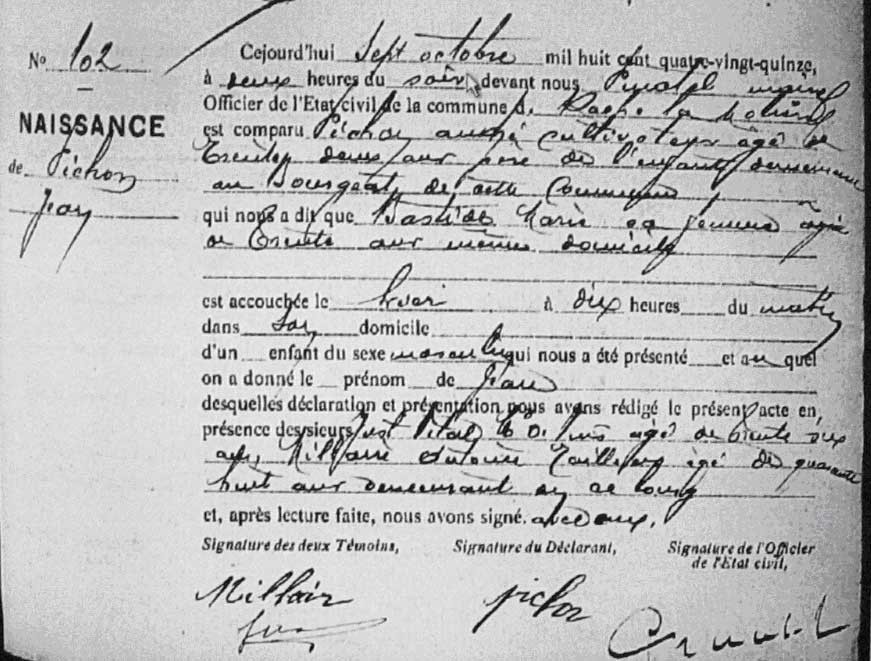 No 102
NAISSANCE
de Pichon
Jean
Cejourd'hui sept octobre mil huit cent quatre-vingt-quinze,
à deux heures du soir devant nous maire
Officier de l'Etat civil de la commune de Roche la Molière
est comparu Pichon cultivateur âgé de
trente deux ans père de l'enfant demeurant
au de cette Commune
qui nous a dit que Bastide Marie sa femme âgée
de trente ans même domicile
est accouchée le hier à dix heures du matin
dans son domicile
d'un enfant du sexe masculin qui nous a été présenté et au quel
on a donné le prénom de Jean
desquelles déclaration et présentation nous avons rédigé le présent acte en
présence des sieurs Just Vital âgé de trente
ans, Antoine âgé de quarante
huit ans demeurant en ce bourg
et, après lecture faite, nous avons signé. avec eux.
Signature des deux Témoins, Signature du Déclarant, Signature de l'Officier
de l'Etat civil,
Millair pichon